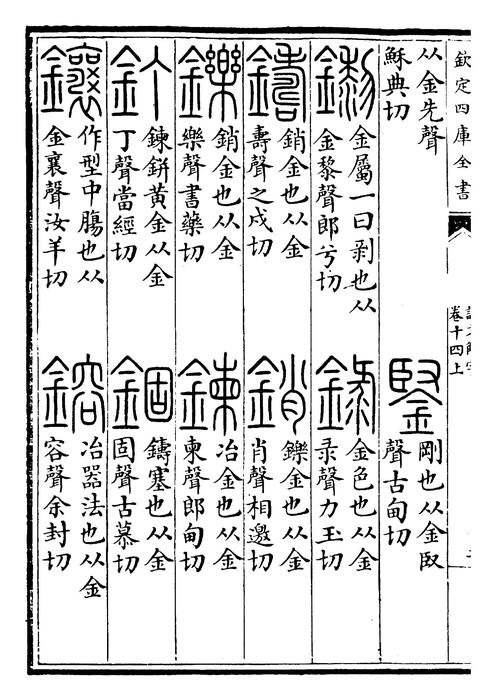 欽定四庫全書
卷十四上
从金先聲
穌典切
鋻
剛也从金臤
聲古甸切
鑗
金屬一曰剥也从
金黎聲郎兮切
録
金色也从金
录聲力玉切
鑄
銷金也从金
壽聲之戍切
銷
鑠金也从金
肖聲相邀切
鑠
銷金也从金
樂聲書藥切
鍊
冶金也从金
柬聲郎甸切
釘
鍊鉼黃金从金
丁聲當經切
錮
鑄塞也从金
固聲古慕切
鑲
作型中膓也从
金襄聲汝羊切
鎔
冶器法也从金
容聲余封切